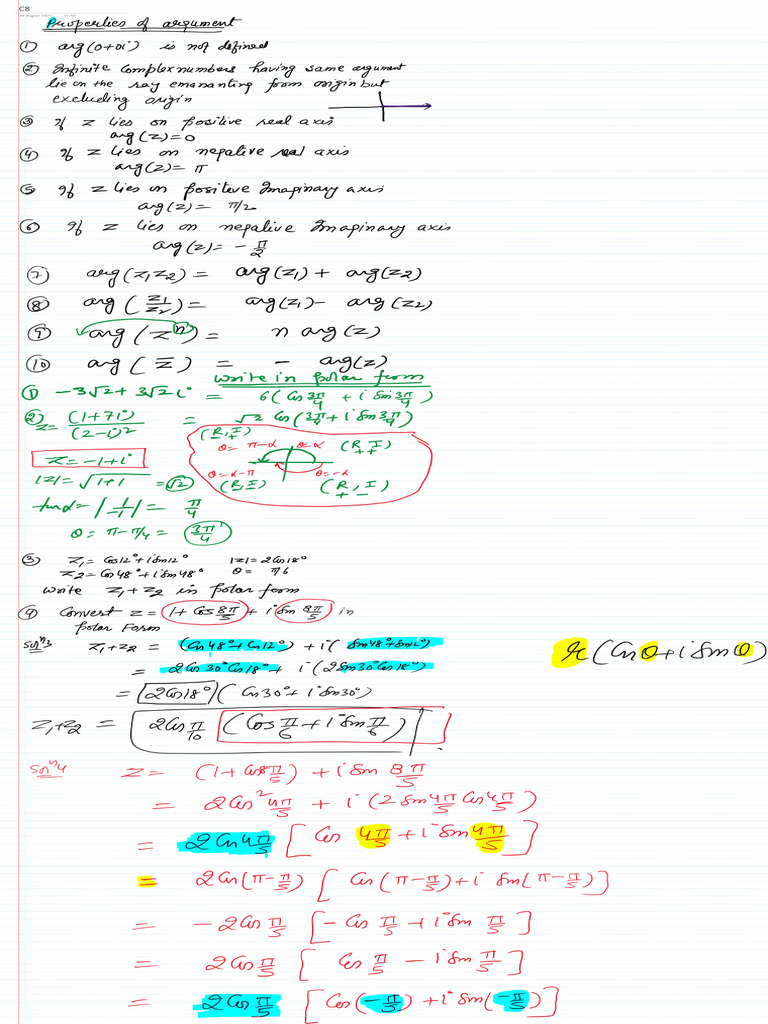 C8
Properties of argument
① arg(0+0i) is not defined
② Infinite complex numbers having same argument
lie on the ray emananting from origin but
excluding origin
③ If z lies on positive real axis
arg(z)=0
④ If z lies on negative real axis
arg(z)= π
⑤ If z lies on positive Imaginary axis
arg(z)= π/2
⑥ If z lies on negative Imaginary axis
arg(z)= -π/2
⑦ arg(z₁z₂)= arg(z₁)+ arg(z₂)
⑧ arg(z₁/z₂)= arg(z₁)- arg(z₂)
⑨ arg(zⁿ)= n arg(z)
⑩ arg(z̅) = - arg(z)
Write in polar form
① -3√2+3√2i = 6(Cos 3π/4 + i Sin 3π/4)
② z= (1+7i)/(2-i)² = √2 Cos(3π/4+i Sin 3π/4)
z=-1+i
|z|=√1+1 =√2
tanα=|1/-1|= π/4
θ= π-π/4= 3π/4
(R,I) - +
θ= π-α
θ=α
(R,I) + +
θ=α-π
θ=-α
(R,I) - -
(R,I) + -
③ z₁=Cos12°+iSin12° |z|=2Cos18°
z₂=Cos48°+iSin48° θ= π/6
Write z₁+z₂ in polar form
④ Convert z=1+Cos 8π/5 + i Sin 8π/5 in
Polar Form
solⁿ3 z₁+z₂ = (Cos48°+Cos12°)+i(Sin48°+Sin12°)
= 2Cos30°Cos18°+ i(2Sin30°Cos18°)
r(Cosθ+iSinθ)
= 2Cos18°(Cos30°+iSin30°)
z₁+z₂ = 2Cos π/10 (Cos π/6+i Sin π/6)
solⁿ4 z= (1+Cos 8π/5)+i Sin 8π/5
= 2Cos² 4π/5 + i(2 Sin 4π/5 Cos 4π/5)
= 2Cos 4π/5 [Cos 4π/5+i Sin 4π/5]
= 2Cos(π-π/5) [Cos(π-π/5)+i Sin(π-π/5)]
= -2Cos π/5 [-Cos π/5+i Sin π/5]
= 2Cos π/5 [Cos π/5 - i Sin π/5]
= 2Cos π/5 [Cos(-π/5)+i Sin(-π/5)]